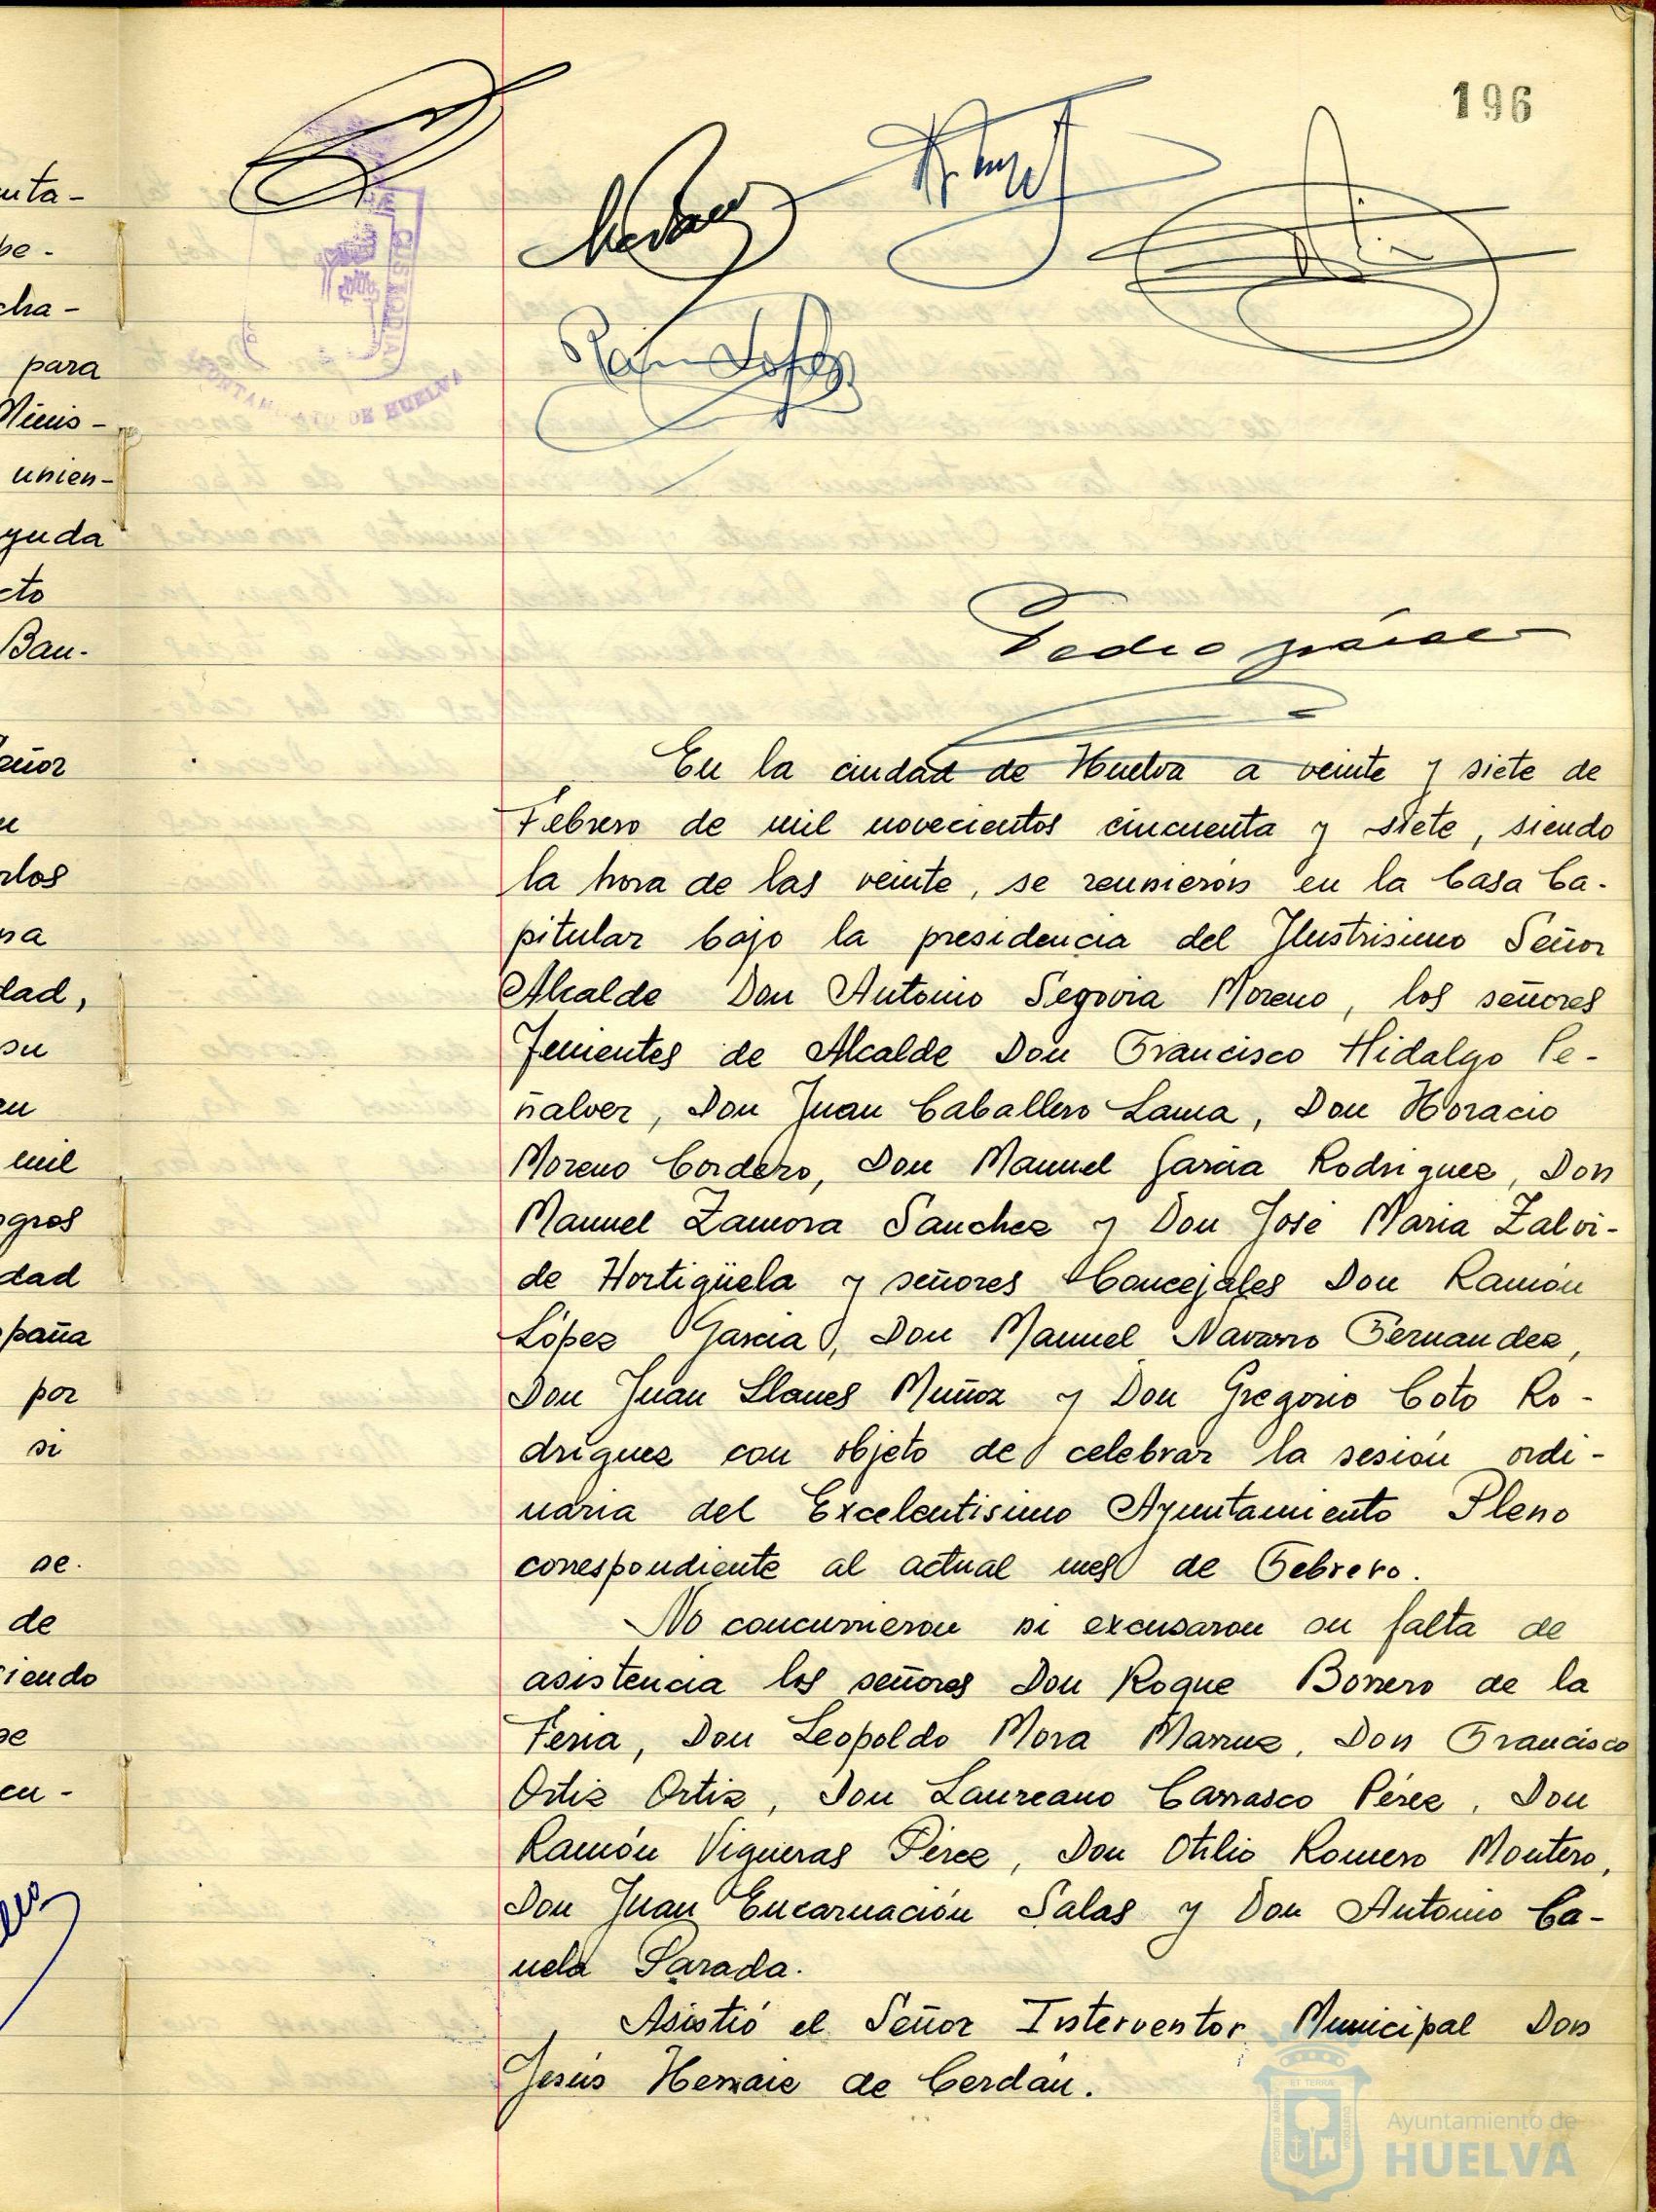 196
CUSTODIA
AYUNTAMIENTO DE HUELVA
Ramón López
Pedro
uta-
be-
cha-
para
Minis-
unien-
yuda
cto
Ban-
eñor
u
rlos
na
dad,
su
en
mil
ogros
dad
paña
por
si
se.
de
iendo
se
cu-
En la ciudad de Huelva a veinte y siete de
Febrero de mil novecientos cincuenta y siete, siendo
la hora de las veinte, se reunieron en la Casa Ca-
pitular bajo la presidencia del Ilustrisimo Señor
Alcalde Don Antonio Segovia Moreno, los señores
Tenientes de Alcalde Don Francisco Hidalgo Pe-
ñalver, Don Juan Caballero Lama, Don Horacio
Moreno Cordero, Don Manuel Garcia Rodriguez, Don
Manuel Zamora Sanchez y Don José Maria Zalvi-
de Hortigüela y señores Concejales Don Ramón
López Garcia, Don Manuel Navarro Fernandez,
Don Juan Llanes Muñoz y Don Gregorio Coto Ro-
driguez con objeto de celebrar la sesión ordi-
naria del Excelentisimo Ayuntamiento Pleno
correspondiente al actual mes de Febrero.
No concurrieron ni excusaron su falta de
asistencia los señores Don Roque Borrero de la
Feria, Don Leopoldo Mora Marruz, Don Francisco
Ortiz Ortiz, Don Laureano Carrasco Pérez, Don
Ramón Vigueras Pérez, Don Otilio Romero Montero,
Don Juan Encarnación Salas y Don Antonio Ca-
nela Parada.
Asistió el Señor Interventor Municipal Don
Jesús Hernaiz de Cerdán.
Ayuntamiento de
HUELVA